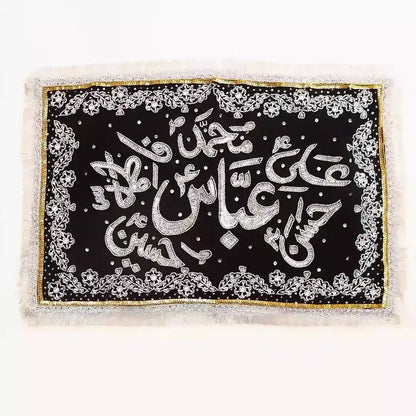 محمدؐ
علیؑ
فاطمہؑ
عباسؑ
حسنؑ
حسینؑ